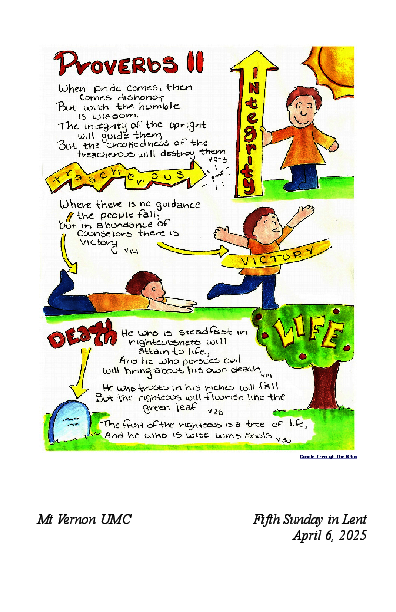 PROVERBS 11
When pride comes, then
comes dishonor,
But with the humble
is wisdom.
The integrity of the upright
will guide them,
But the crookedness of the
treacherous will destroy them
v2-3
Treacherous
Integrity
Where there is no guidance
the people fall,
But in abundance of
Counselors there is
Victory
v14
VICTORY
DEATH
LIFE
He who is steadfast in
righteousness will
attain to life,
And he who pursues evil
will bring about his own death
v19
He who trusts in his riches will fall
But the righteous will flourish like the
green leaf v28
The fruit of the righteous is a tree of life,
And he who is wise wins souls v30
Doodle Through The Bible
Mt Vernon UMC
Fifth Sunday in Lent
April 6, 2025